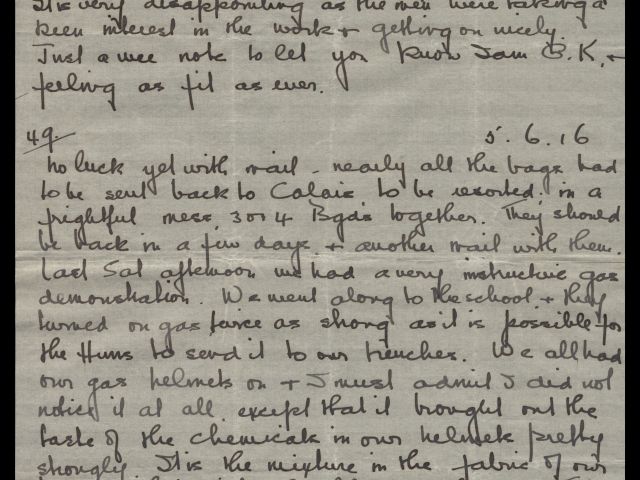 It is very disappointing as the men were taking a
keen interest in the work + getting on nicely.
Just a wee note to let you know I am O.K. +
feeling as fit as ever.
49. 5. 6. 16
No luck yet with mail - nearly all the bags had
to be sent back to Calais to be resorted, in a
frightful mess, 3 or 4 Bgds together. They should
be back in a few days + another mail with them.
Last Sat afternoon we had a very instructive gas
demonstration. We went along to the school + they
turned on gas twice as strong as it is possible for
the Huns to send it to our trenches. We all had
our gas helmets on + I must admit I did not
notice it at all, except that it brought out the
taste of the chemicals in our helmets pretty
strongly. It is the mixture in the fabric of our